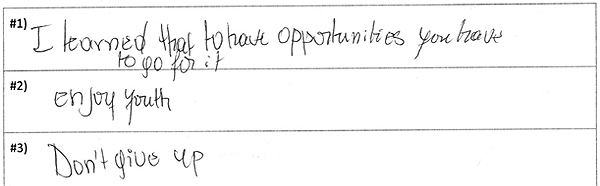 #1) I learned that to have opportunities you have
to go for it
#2) enjoy youth
#3) Don't give up